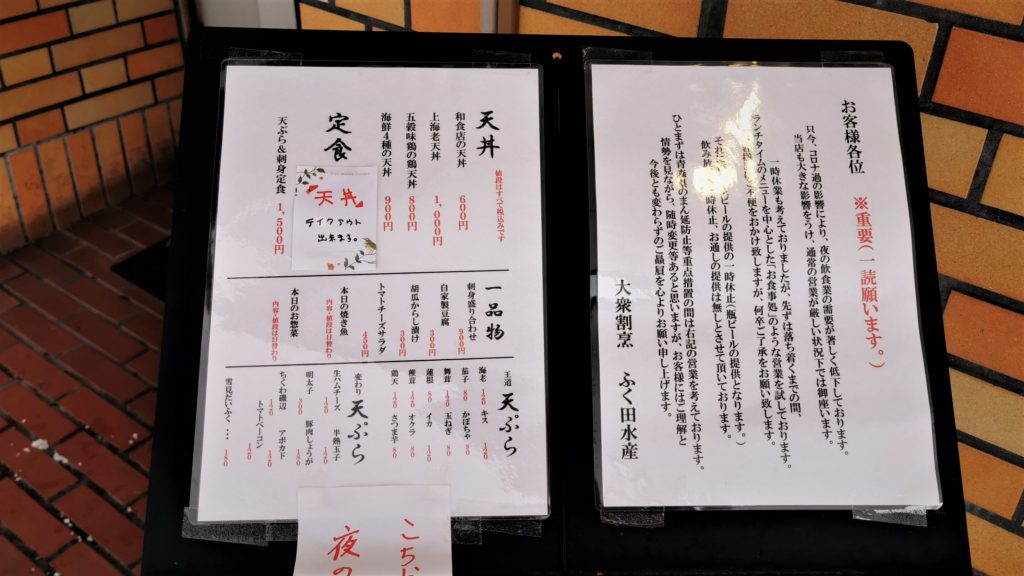 天丼 値段はすべて税込みです
和食店の天丼 600円
上海老天丼 1,000円
五穀味鶏の鶏天丼 800円
海鮮4種の天丼 900円
定食
天ぷら&刺身定食 1,500円
『天丼』
テイクアウト
出来ます。
一品物
刺身盛り合わせ 900円
自家製豆腐 300円
胡瓜からし漬け 300円
トマトチーズサラダ 450円
本日の焼き魚
内容・値段は日替わり
本日のお惣菜
内容・値段は日替わり
王道 天ぷら
海老 キス 120
茄子 80 かぼちゃ 80
舞茸 玉ねぎ 80
蓮根 イカ
椎茸 オクラ 80
鶏天 120 さつま芋 80
変わり 天ぷら
生ハムチーズ 半熟玉子
明太子 300 豚肉しょうが
ちくわ磯辺 120 アボカド
トマトベーコン
雪見だいふく… 150
こちら
夜の
お客様各位
※重要(一読願います。)
只今、コロナ過の影響により、夜の飲食業の需要が著しく低下しております。
当店も大きな影響をうけ、通常の営業が厳しい状況下では御座います。
一時休業も考えておりましたが、先ずは落ち着くまでの間、
ランチタイムのメニューを中心とした「お食事処」のような営業を試しております。
不便をおかけ致しますが、何卒ご了承をお願い致します。
ビールの提供の一時休止(瓶ビールの提供となります。)
一時休止、お通しの提供は無しとさせて頂いております。
ひとまずは のまん延防止等重点措置の間は右記の営業を考えております。
情勢を見ながら、随時変更等あると思いますが、お客様にはご理解と
今後とも変わらずのご贔屓を心よりお願い申し上げます。
大衆割烹 ふく田水産